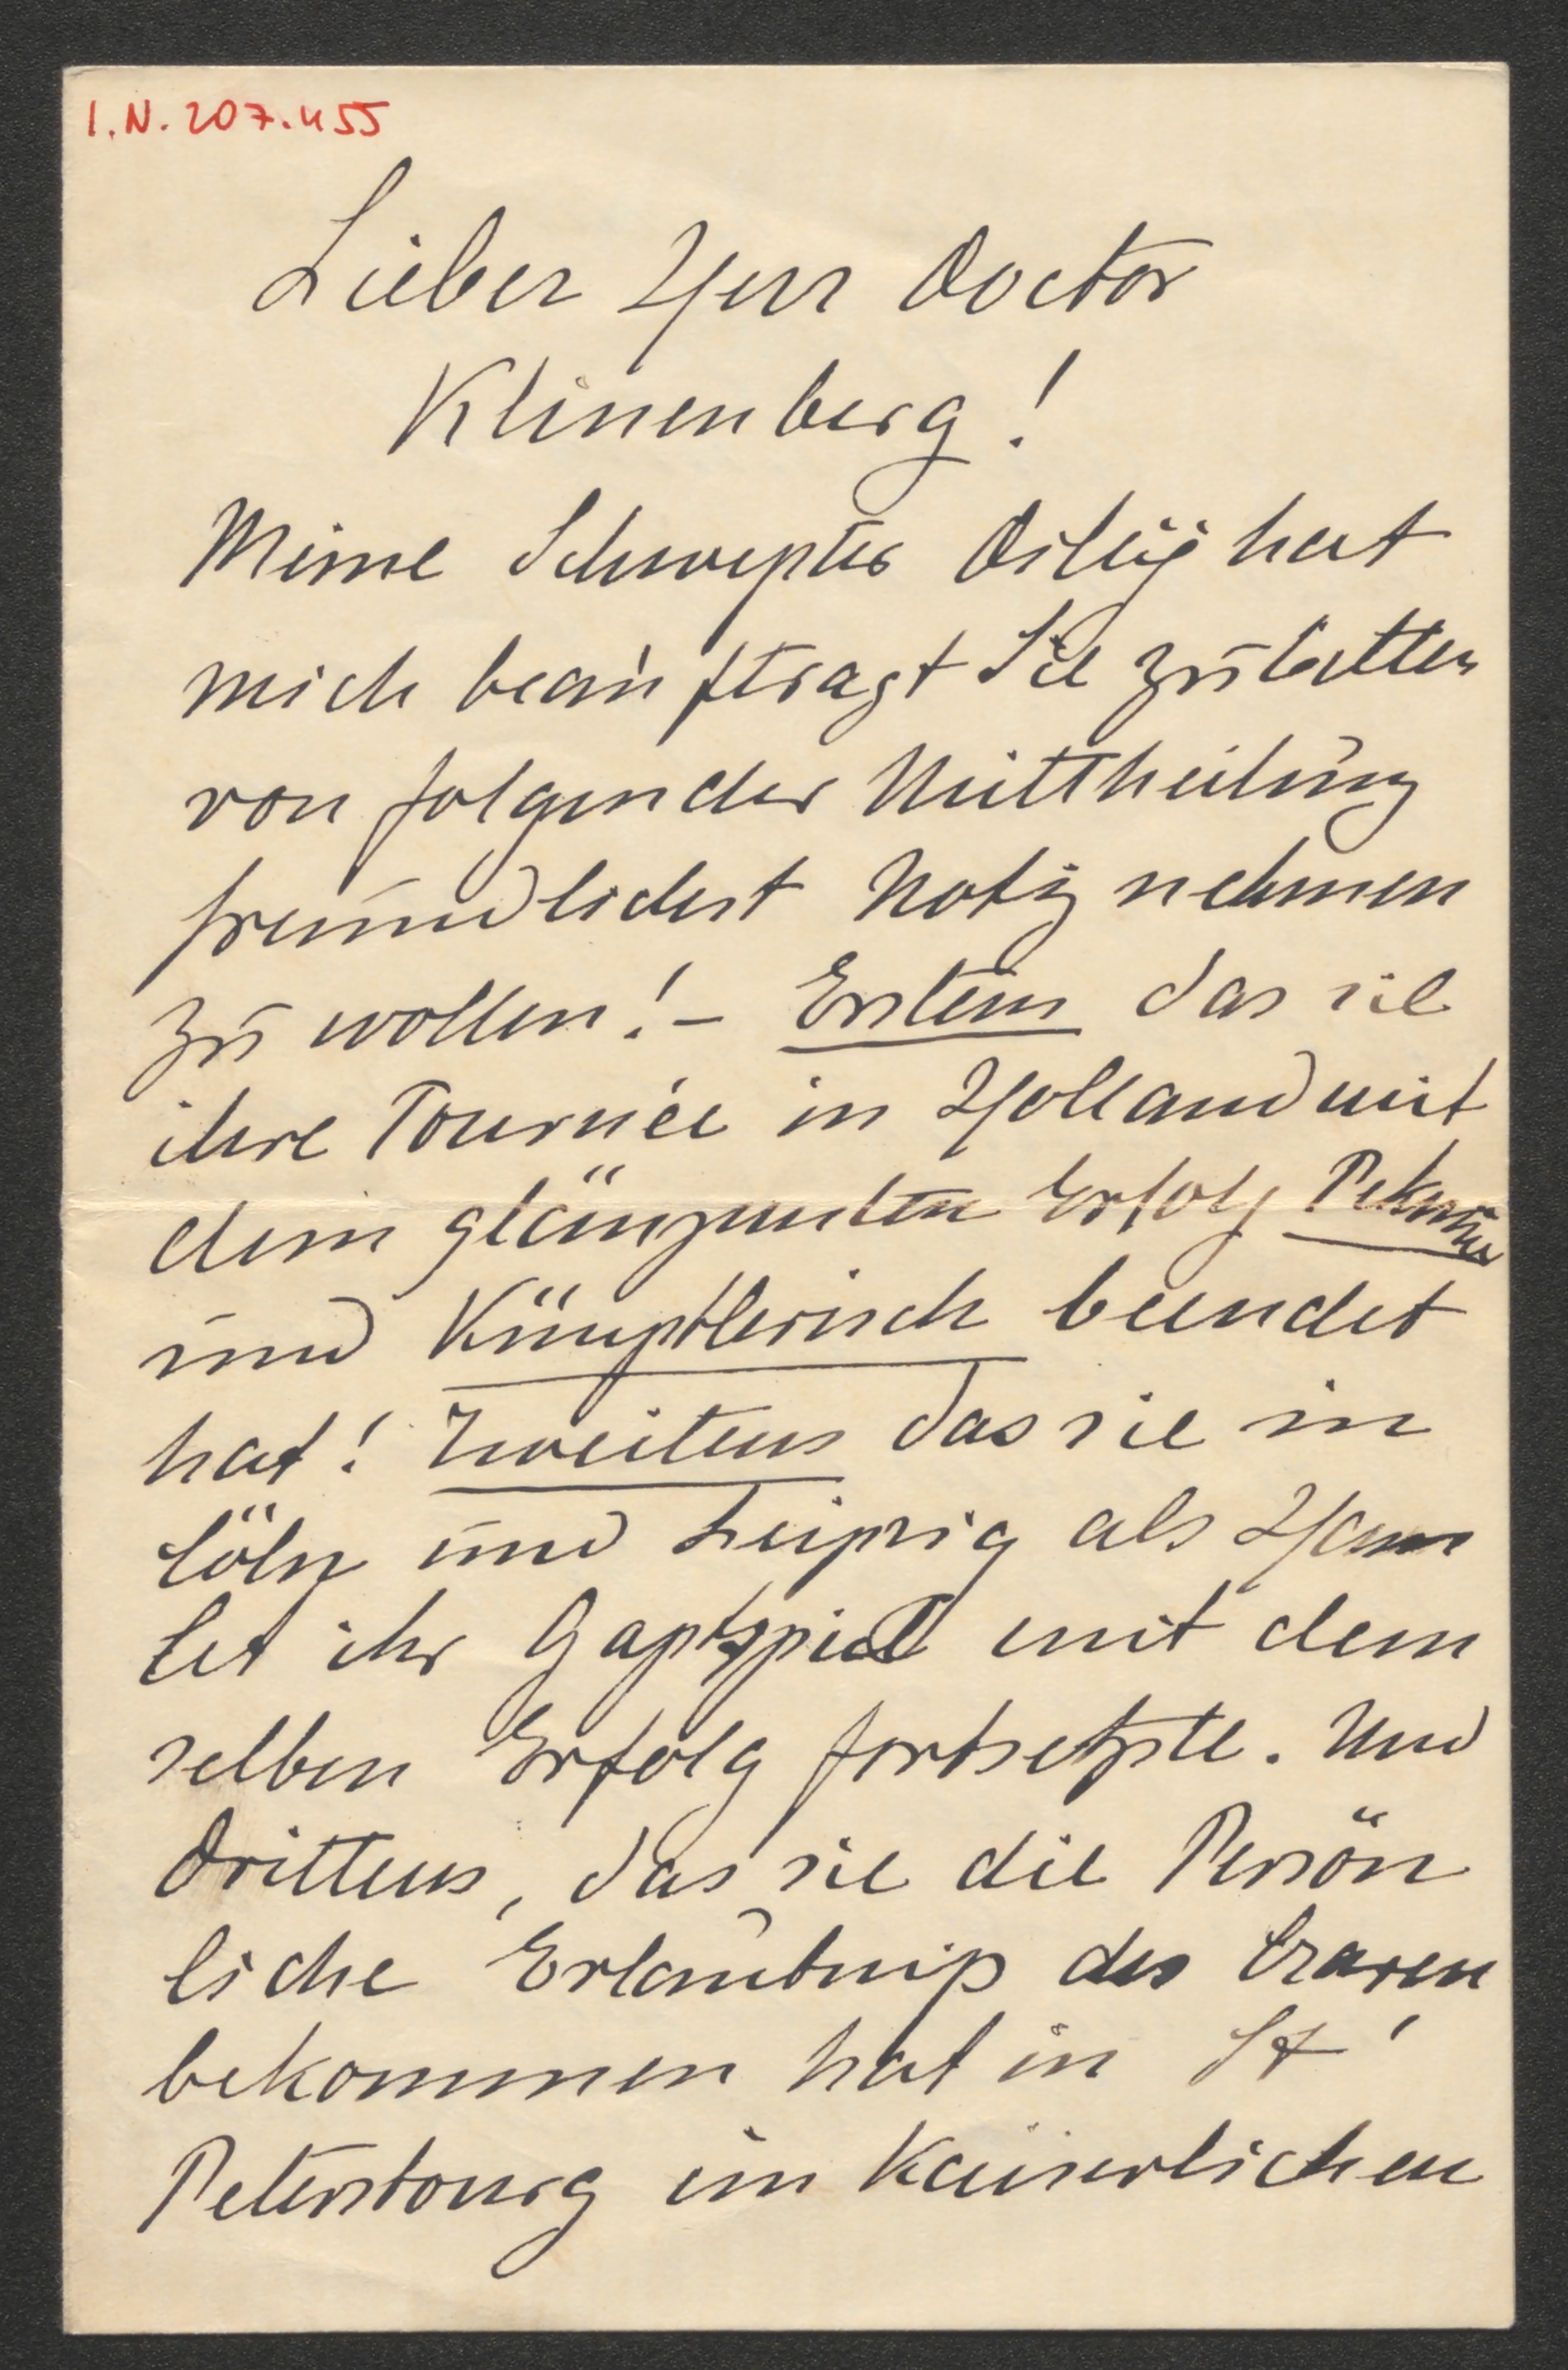 I.N. 207.455
Lieber Herr Doctor
Klinenberg!
Meine Schwester hat
mich beauftragt Sie zu bitten
von folgender Mittheilung
freundlichst Notiz nehmen
zu wollen! – Erstens das sie
ihre Tournée in Holland mit
dem glänzendsten Erfolg
und Künstlerisch beendet
hat! Zweitens das sie in
Cöln und Leipzig als Ham
let ihr Gastspiel mit dem
selben Erfolg fortsetzte. Und
Drittens, das sie die Persön
liche Erlaubniß des Czaren
bekommen hat in St
Petersbourg im Kaiserlichen